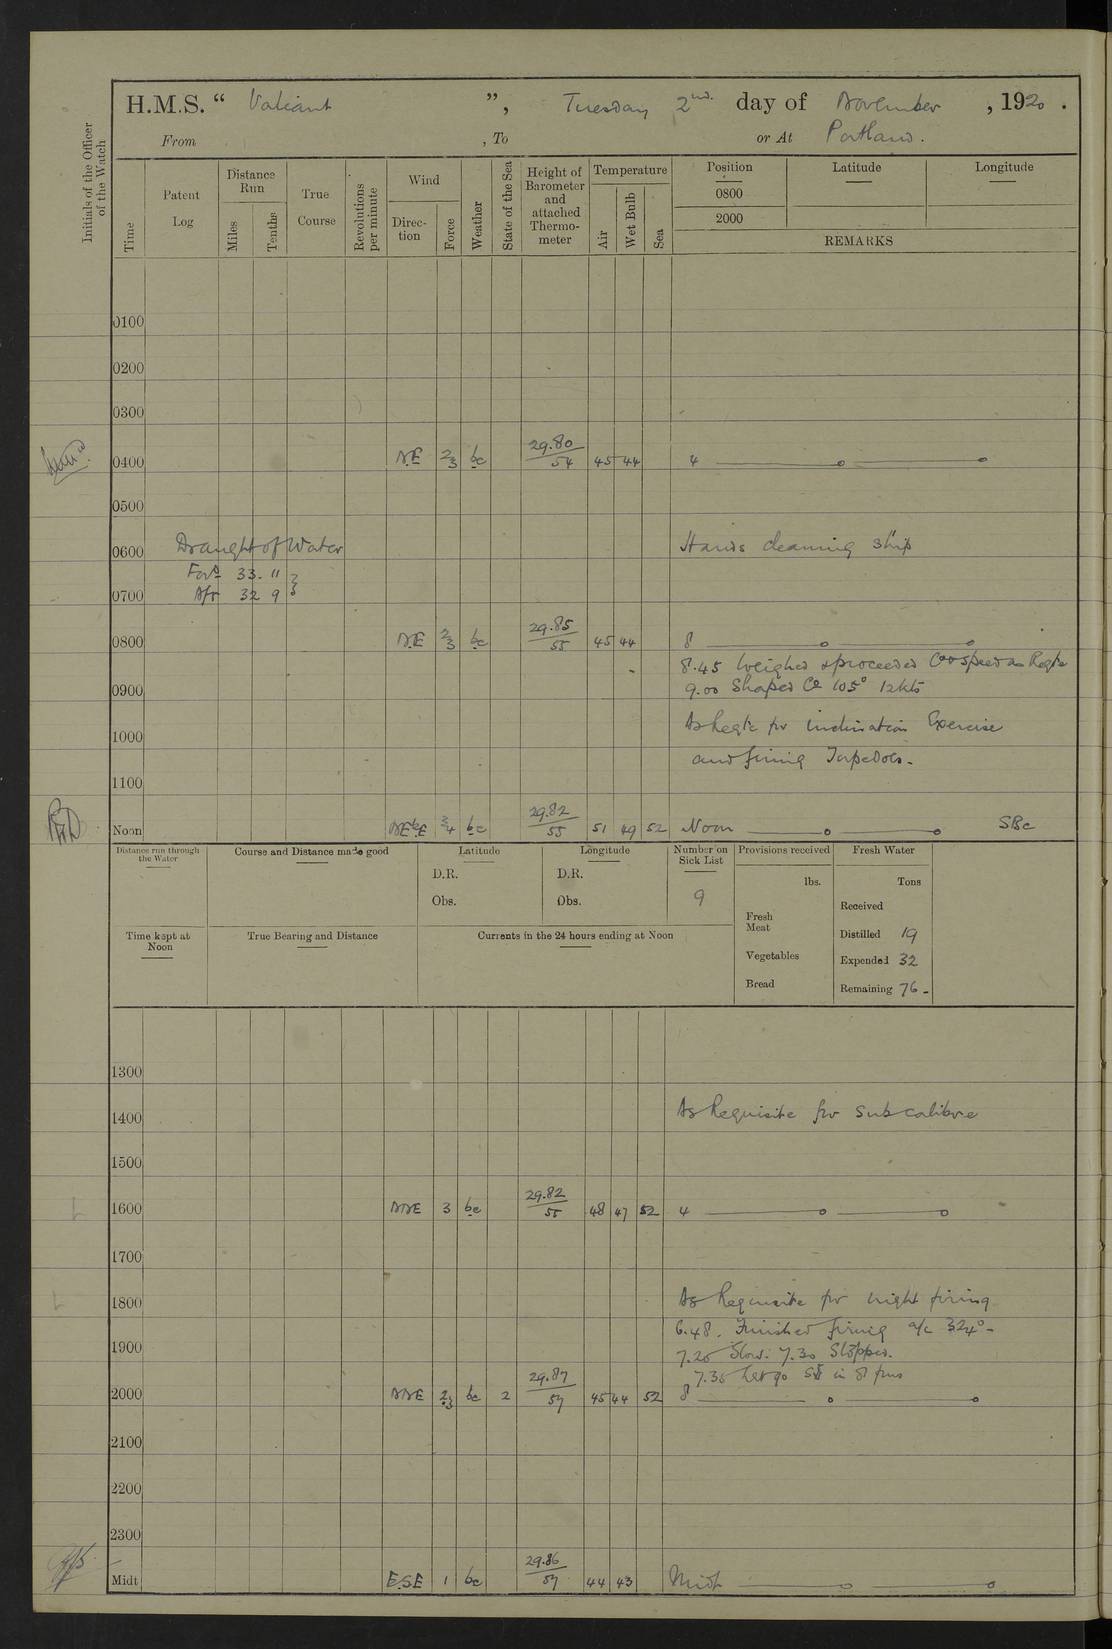 H.M.S. “ Valiant ”, Tuesday 2nd. day of November , 1920 .
From , To or At Portland .
Initials of the Officer of the Watch
Time
Patent Log
Distance Run
Miles
Tenths
True Course
Revolutions per minute
Wind
Direction
Force
Weather
State of the Sea
Height of Barometer and attached Thermometer
Temperature
Air
Wet Bulb
Sea
Position
0800
2000
Latitude
Longitude
REMARKS
0100
0200
0300
0400 NE 2/3 bc 29.80/54 45 44 4
0500
0600 Draught of Water Hands cleaning ship
Ford 33. 11
0700 Aft 32 9
0800 NE 2/3 bc 29.85/55 45 44 8
8.45 Weighed & proceeded Co & speed as Reqte
0900 9.00 Shaped Co 105° 12 kts
1000 As Reqte for inclination Exercise
and firing Torpedoes.
1100
Noon NEbE 3/4 bc 29.82/55 51 49 52 Noon
Distance run through the Water
Course and Distance made good
Latitude
D.R.
Obs.
Longitude
D.R.
Obs.
Number on Sick List
9
Provisions received
lbs.
Fresh Meat
Vegetables
Bread
Fresh Water
Tons
Received
Distilled 19
Expended 32
Remaining 76
Time kept at Noon
True Bearing and Distance
Currents in the 24 hours ending at Noon
1300
1400 As Requisite for sub calibre
1500
1600 NNE 3 bc 29.82/55 48 47 52 4
1700
1800 As Requisite for night firing
6.48. Finished firing a/c 324°
1900 7.25 Slow. 7.30 Stopped.
7.35 let go in 8 fms
2000 NNE 2/3 bc 2 29.87/57 45 44 52 8
2100
2200
2300
Midt E.S.E 1 bc 29.86/57 44 43 Midt